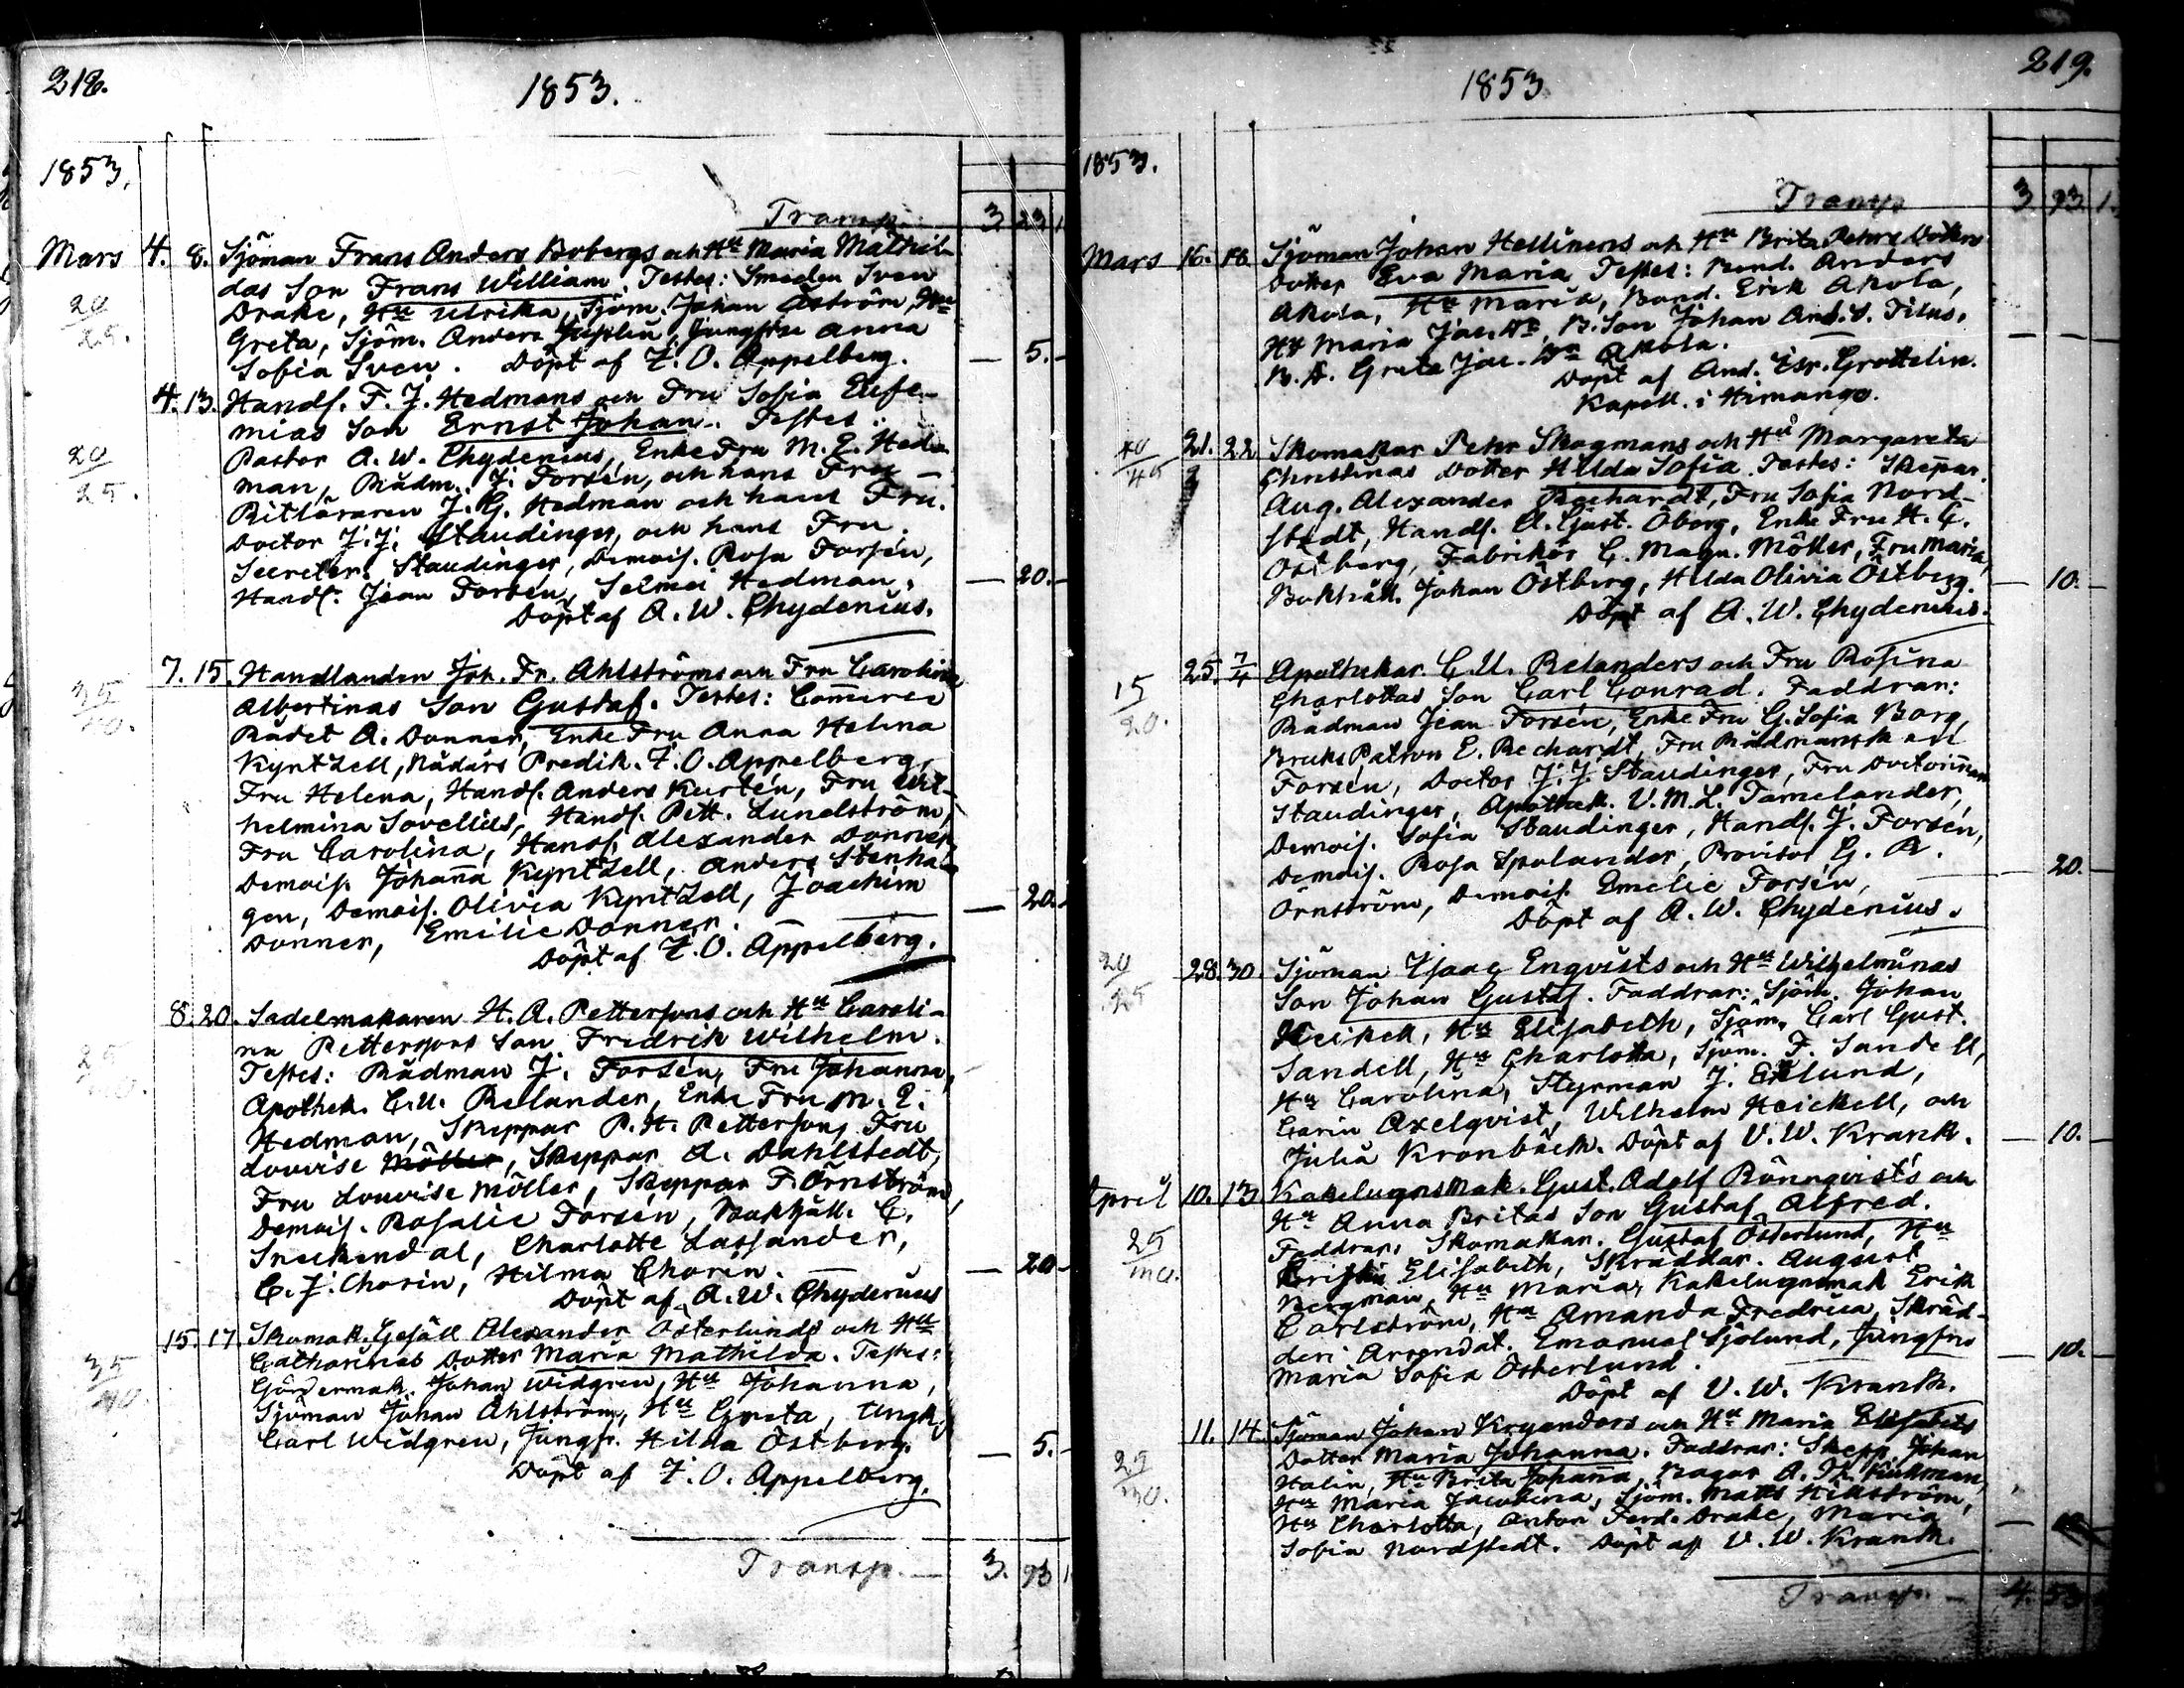 218.
1853.
1853.
Transp. 3. 23. 1
Mars 4. 8. Sjöman Frans Anders Bobergs och Hu Maria Mathil-
20/25. das Son Frans William. Testes: Smeden Sven
Drake, Hu Ulrika, Sjöm. Johan Åström, Hu
Greta, Sjöm. Anders Juplin, Jungfru Anna
Sofia Sven. Döpt af F. O. Appelberg. — 5. —
4. 13. Handl. F. J. Hedmans och Fru Sofia Eufe-
mias Son Ernst Johan. Testes:
20/25. Pastor A. W. Chydenius, Enke Fru M. E. Hed-
man, Rådm. J. Forsén, och hans Fru —
Ritläraren J. G. Hedman och hans Fru.
Doctor J. J. Staudinger, och hans Fru.
Secreter. Staudinger, Demois. Rosa Forsén,
Handl. Jean Forsén, Selma Hedman. — 20. —
Döpt af A. W. Chydenius.
7. 15. Handlanden Joh. Fr. Ahlströms och Fru Carolina
35/40. Albertinas Son Gustaf. Testes: Comerce
Rådet A. Donner, Enke Fru Anna Helena
Kyntzell, Nådårs Predik. F. O. Appelberg,
Fru Helena, Handl. Anders Kurtén, Fru Wil-
helmina Sovelius, Handl. Pett. Lundström,
Fru Carolina, Handl. Alexander Donner,
Demois. Johanna Kyntzell, Anders Stenha-
gen, Demois. Olivia Kyntzell, Joachim — 20. —
Donner, Emilie Donner.
Döpt af F. O. Appelberg.
8. 20. Sadelmakaren H. A. Pettersons och Hu Caroli-
na Pettersons Son Fredrik Wilhelm.
Testes: Rådman J. Forsén, Fru Johanna,
Apothek. C. U. Relander, Enke Fru M. E.
Hedman, Skeppar P. H. Petterson, Fru
Lovise Möller, Skeppar A. Dahlstedt,
Fru Lovise Möller, Skeppar F. Örnström,
Demois. Rosalie Forsén, Bokhåll. C.
Sneckendal, Charlotte Lassander,
C. J. Chorin, Hilma Chorin. — 20 —
Döpt af A. W. Chydenius
15. 17. Skomak. Gesäll Alexander Österlunds och Hu
35/40. Catharinas Dotter Maria Mathilda. Testes:
Gördermak. Johan Widgren, Hu Johanna,
Sjöman Johan Ahlström, Hu Greta, Ungk.
Carl Widgren, Jungfr. Hilda Östberg. — 5. —
Döpt af F. O. Appelberg.
Transp. — 3. 93 1
219.
1853
1853.
Transp 3. 93. 1.
Mars 16. 18. Sjöman Johan Hellmens och Hu Brita Pehrs Dotters
Dotter Eva Maria Testes: Bond. Anders
Akola, Hu Maria, Bond. Erik Akola,
Hu Maria Jac. Dr, B. Son Johan And. S. Filus.
B. D. Greta Jac. Dr Akola.
Döpt af And. Esr. Grottelin.
Kapell. i Himango.
21. 22 Skomakar Pehr Skogmans och Hu Margareta
Christinas Dotter Hilda Sofia Testes: Skepar.
Aug. Alexander Rechardt, Fru Sofia Nord-
stedt, Handl. A. Gust. Öberg, Enke Fru H. C.
Östberg, Fabrikör C. Magn. Möller, Fru Maria,
Bokhåll. Johan Östberg, Hilda Olivia Östberg. — 10. —
Döpt af A. W. Chydenius.
25. 7/4 Apothekar. C. U. Relanders och Fru Rosina
15/20. Charlottas Son Carl Conrad. Faddrar:
Rådman Jean Forsén, Enke Fru G. Sofia Borg,
Bruks Patron E. Rechardt, Fru Rådmanskan
Forsén, Doctor J. J. Staudinger, Fru Doctorinnan
Staudinger, Apothek. V. M. L. Tamelander,
Demois. Sofia Staudinger, Handl. J. Forsén,
Demois. Rosa Spolander, Provisor G. R. — 20. —
Örnström, Demois. Emelie Forsén,
Döpt af A. W. Chydenius.
20/25 28. 30. Sjöman Isaac Enqvists och Hu Wilhelminas
Son Johan Gustaf. Faddrar: Sjöm. Johan
Heikell, Hu Elisabeth, Sjöm. Carl Gust.
Sandell, Hu Charlotta, Sjöm. F. Sandell,
Hu Carolina, Styrman J. Eklund,
Carin Axelqvist, Wilhelm Heickell, och
Julia Kronbäck. Döpt af V. W. Krank. — 10. —
April 10. 13. Kakelugnsmak. Gust. Adolf Rönnqvist's och
Hu Anna Britas Son Gustaf Alfred.
25/30. Faddrar, Skomakar. Gustaf Österlund, Hu
Elisabeth, Skräddar. August
Bergman, Hu Maria, Kakelugnsmak Erik
Carlström, Hu Amanda Fredrica, Skräd-
deri Arrendat. Emanuel Sjölund, Jungfru — 10. —
Maria Sofia Österlund.
Döpt af V. W. Krank.
11. 14. Sjöman Johan Kryanders och Hu Maria Elisabets
Dotter Maria Johanna. Faddrar: Skepp. Johan
Halin, Hu Brita Johanna, Bagar A. Th. Kuhlman,
Hu Maria Jacobina, Sjöm. Matts Hällström,
Hu Charlotta, Anton Ferd. Drake, Maria
Sofia Nordstedt. Döpt af V. W. Krank.
Transp. — 4. 53